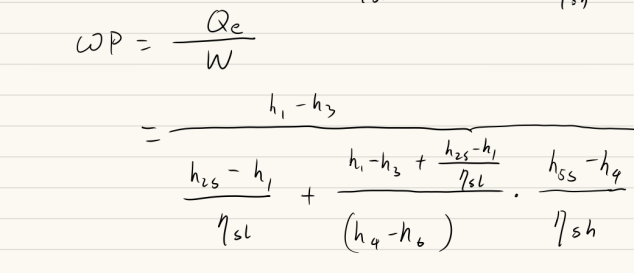 COP = Qe / W
= (h₁ - h₃) / ((h₂s - h₁) / ηsl + (h₁ - h₃ + (h₂s - h₁) / ηsl) / (h₄ - h₆) · (h₅s - h₄) / ηsh)